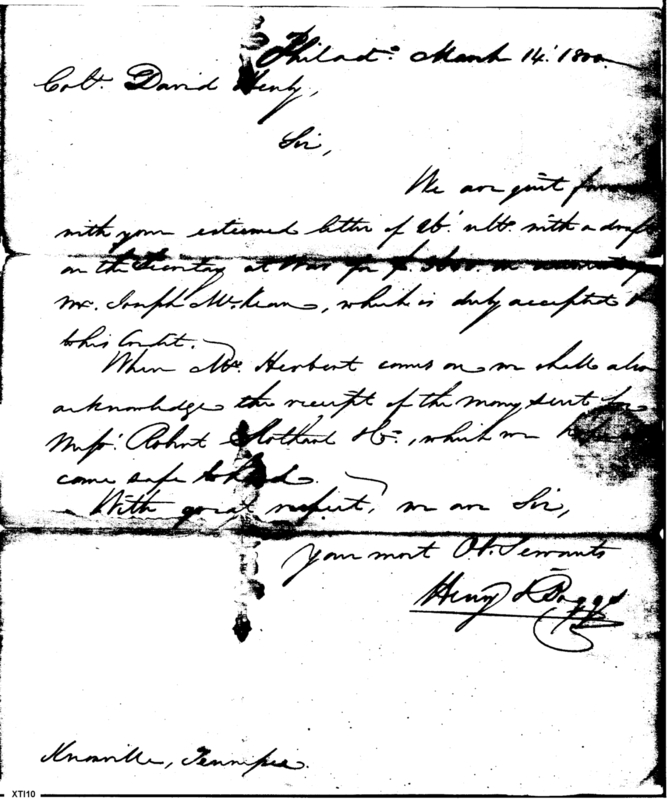 Philadᵃ. March 14ᵗ. 1800
Colᵒ. David Henly,
Sir,
We are just favor
with your esteemed letter of 26ᵗ. ultᵒ. with a draft
on the Secretary at War for on account of
Mr. Joseph McKean, which is duly accepted
to his Credit.
When Mr. Herbert comes on we shall also
acknowledge the receipt of the money sent for
Messʳˢ. Robert Stothart & Cᵒ., which we
come safe to hand.
With great respect, we are Sir,
Your most Ob. Servants
Henry & Boggs
Knoxville, Tennessee.
XTI10